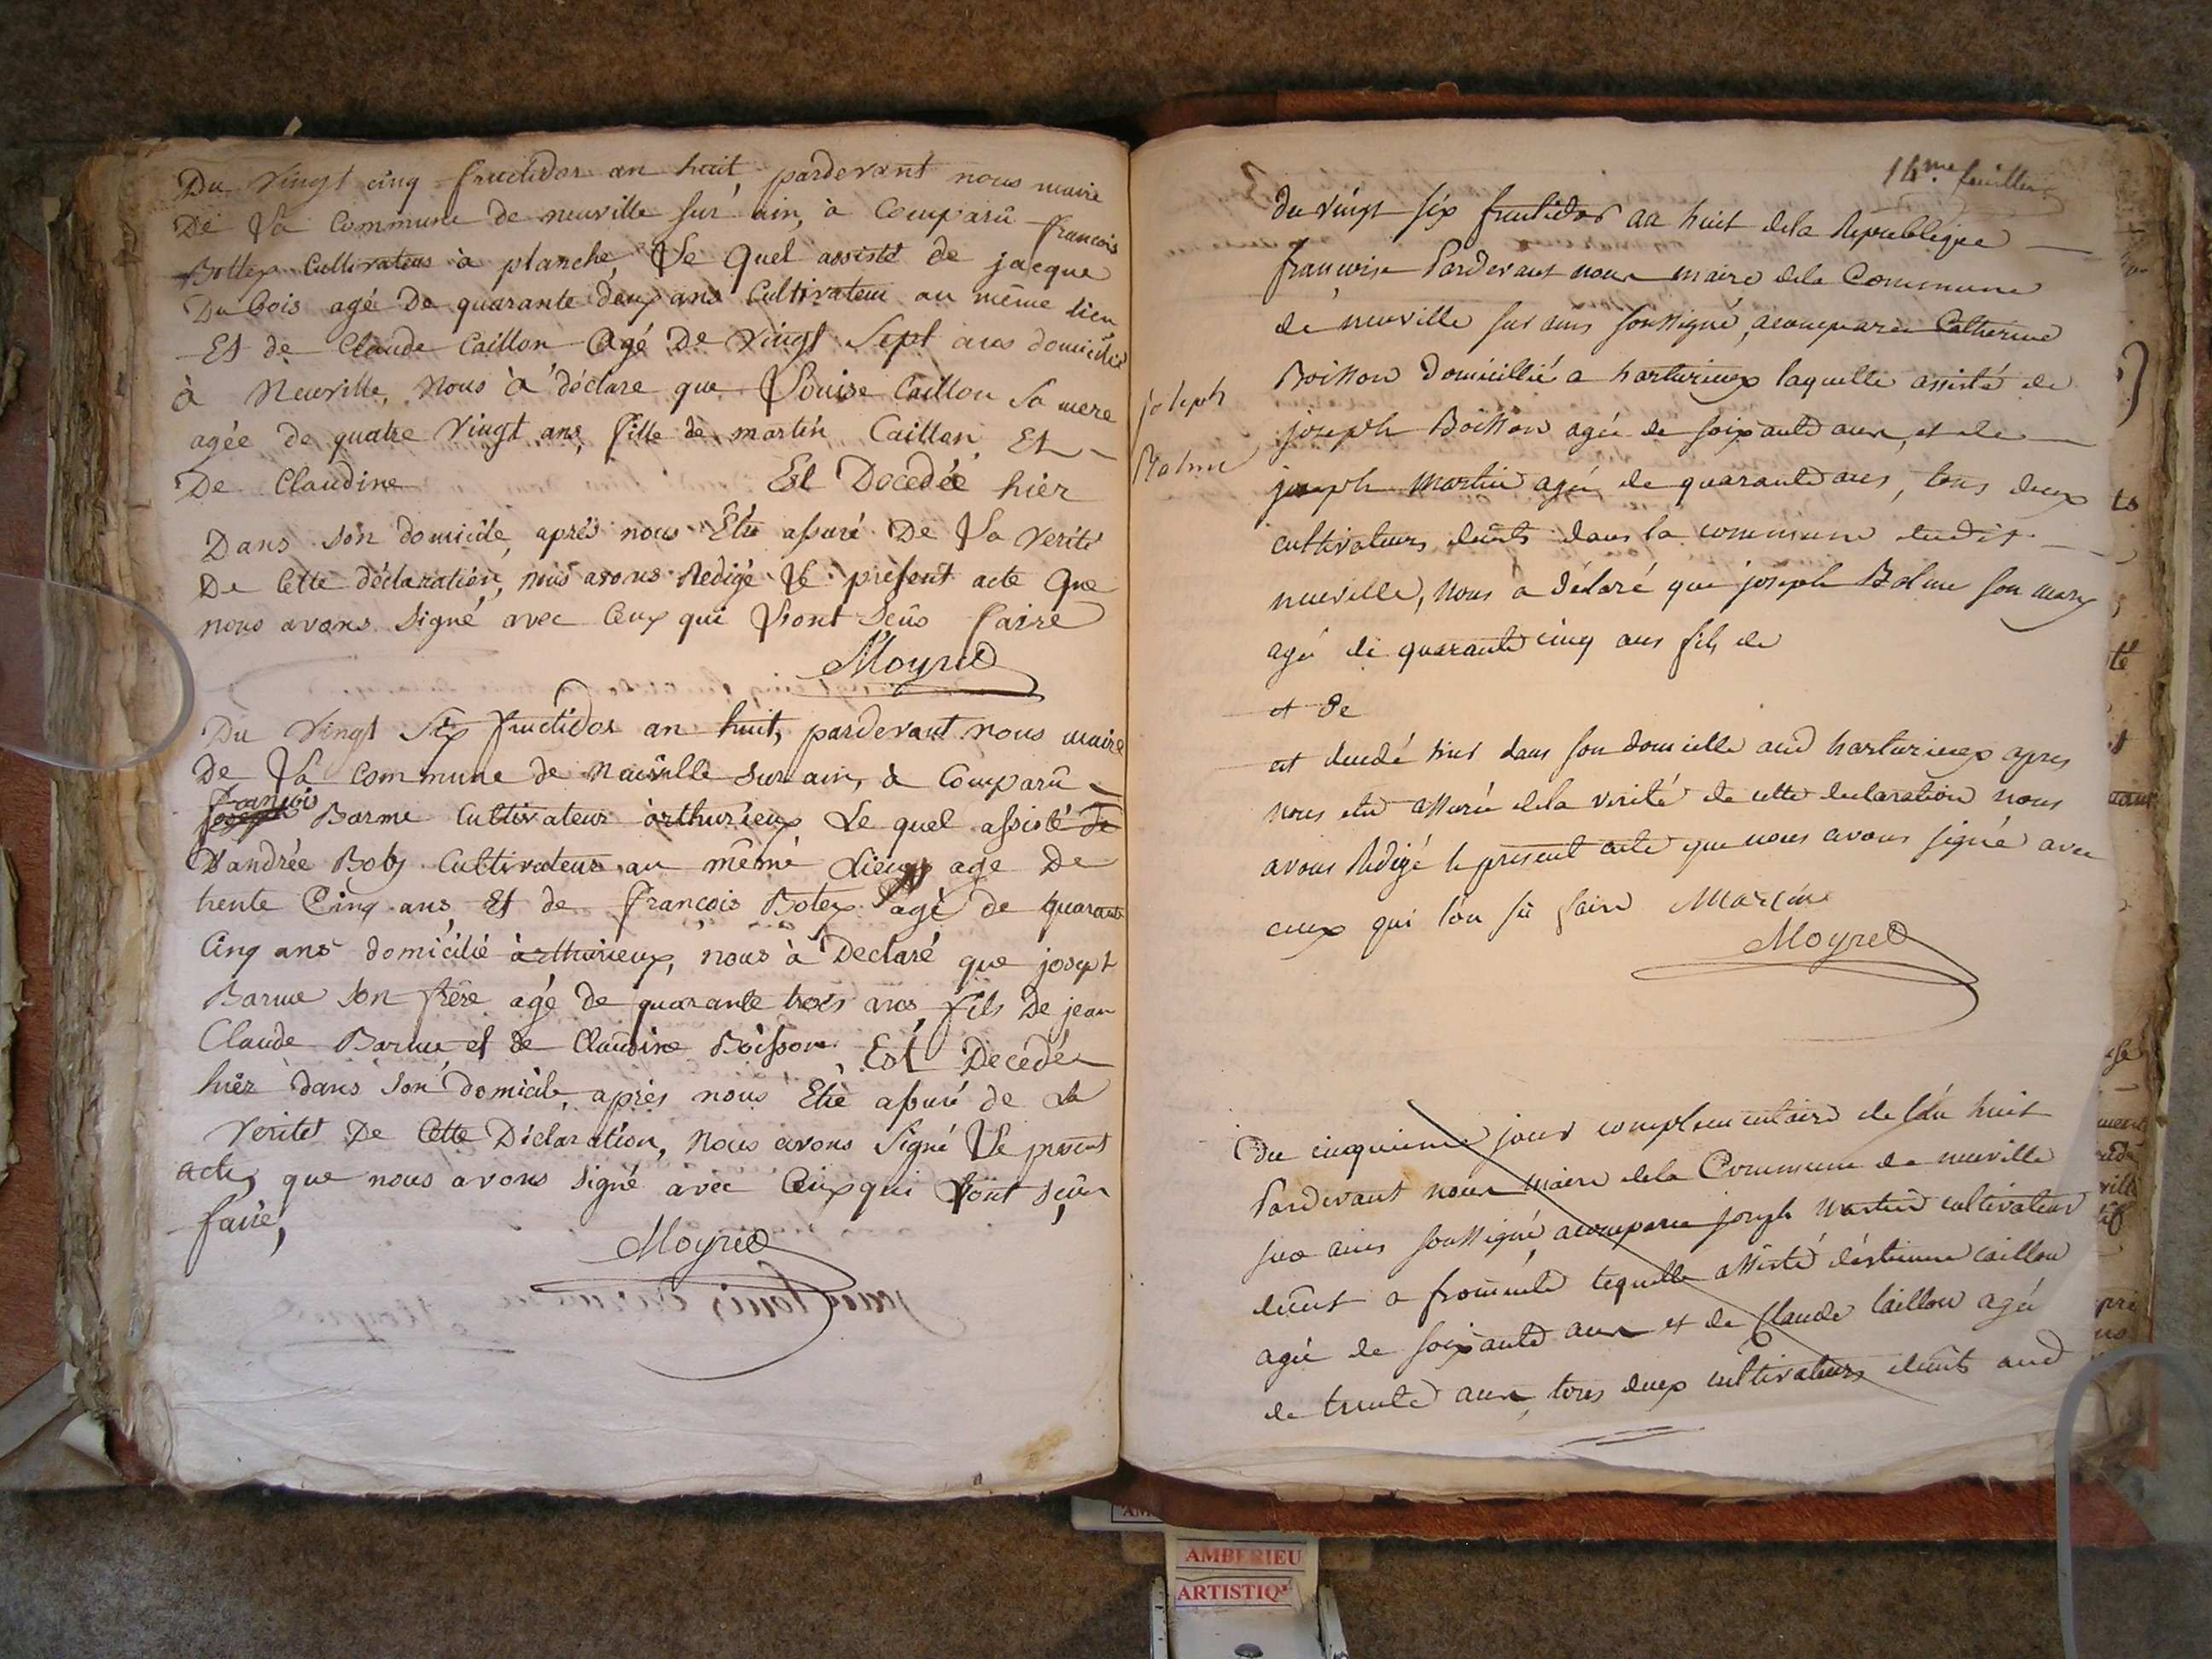 Du vingt cinq fructidor an huit, pardevant nous maire
De La Commune de neuville sur ain, à Comparû françois
Bottex Cultivateur à planche, Le Quel assisté de jacque
Dubois agé De quarante deux ans Cultivateur au même lieu
Et de Claude Caillon Agé De Vingt Sept ans domicilié
à Neuville, Nous à déclare que Louise Caillon Sa mere
agée de quatre Vingt ans, fille de martin Caillon, Et
De Claudine Est Docedée hier
Dans son domicile, aprés nous Etre assuré De La Verité
De Cette déclaration, nous avons Redigé Le present acte Que
nous avons Signé avec Ceux qui Lont Seûs faire
Moyret
Du Vingt Six fructidor an huit, pardevant nous maire
De La Commune de Neuville Sur ain, à Comparû
françois
Joseph Barme Cultivateur àrthurieux Le quel assisté de
D'andrée Cultivateur au même Lieux age De
trente Cinq ans Et de françois Botex agé de quarante
Cinq ans domicilié àrthurieux, nous à Declaré que josept
Barme Son frère agé de quarante trois ans, fils De jean
Claude Barme et de Claudine Boisson Est Decedée
hièr dans Son domicile, aprés nous Etre assuré de La
Veritet De Cette Déclaration, Nous avons Signé Le present
acte, que nous avons Signé avec Ceux qui Lont Seûs
faire,
Moyret
14me feuillet
du vingt six fructidor an huit dela Republique
françoise Pardevant nous maire dela Commune
de neuville sur ains soussigné, acomparu Catherine
Boisson domicillié a harturieux laquelle assisté de
joseph Boisson agée de soixante ans, et de
joseph martin agée de quarante ans, tous deux
cultivateurs dans la commune dudit
neuville, nous a déclaré que joseph Balme son mary
agé de quarante cinq ans fils de
et de
est decedé hier dans son domicille aud harturieux apres
nous etre assurée dela verité de cette declaration nous
avons Redigé le present acte que nous avons signé avec
ceux qui l'on sü faire Martin
Moyret
joseph
Balme
du cinquieme jour complementaire de l'an huit
Pardevant nous maire dela Commune de neuville
sur ains soussigné, acomparu joseph Martin cultivateur
a fromente lequelle assisté d'estienne caillon
agée de soixante ans et de Claude Caillon agée
de trente ans, tous deux cultivateurs aud
AMBERIEU
ARTISTIQ